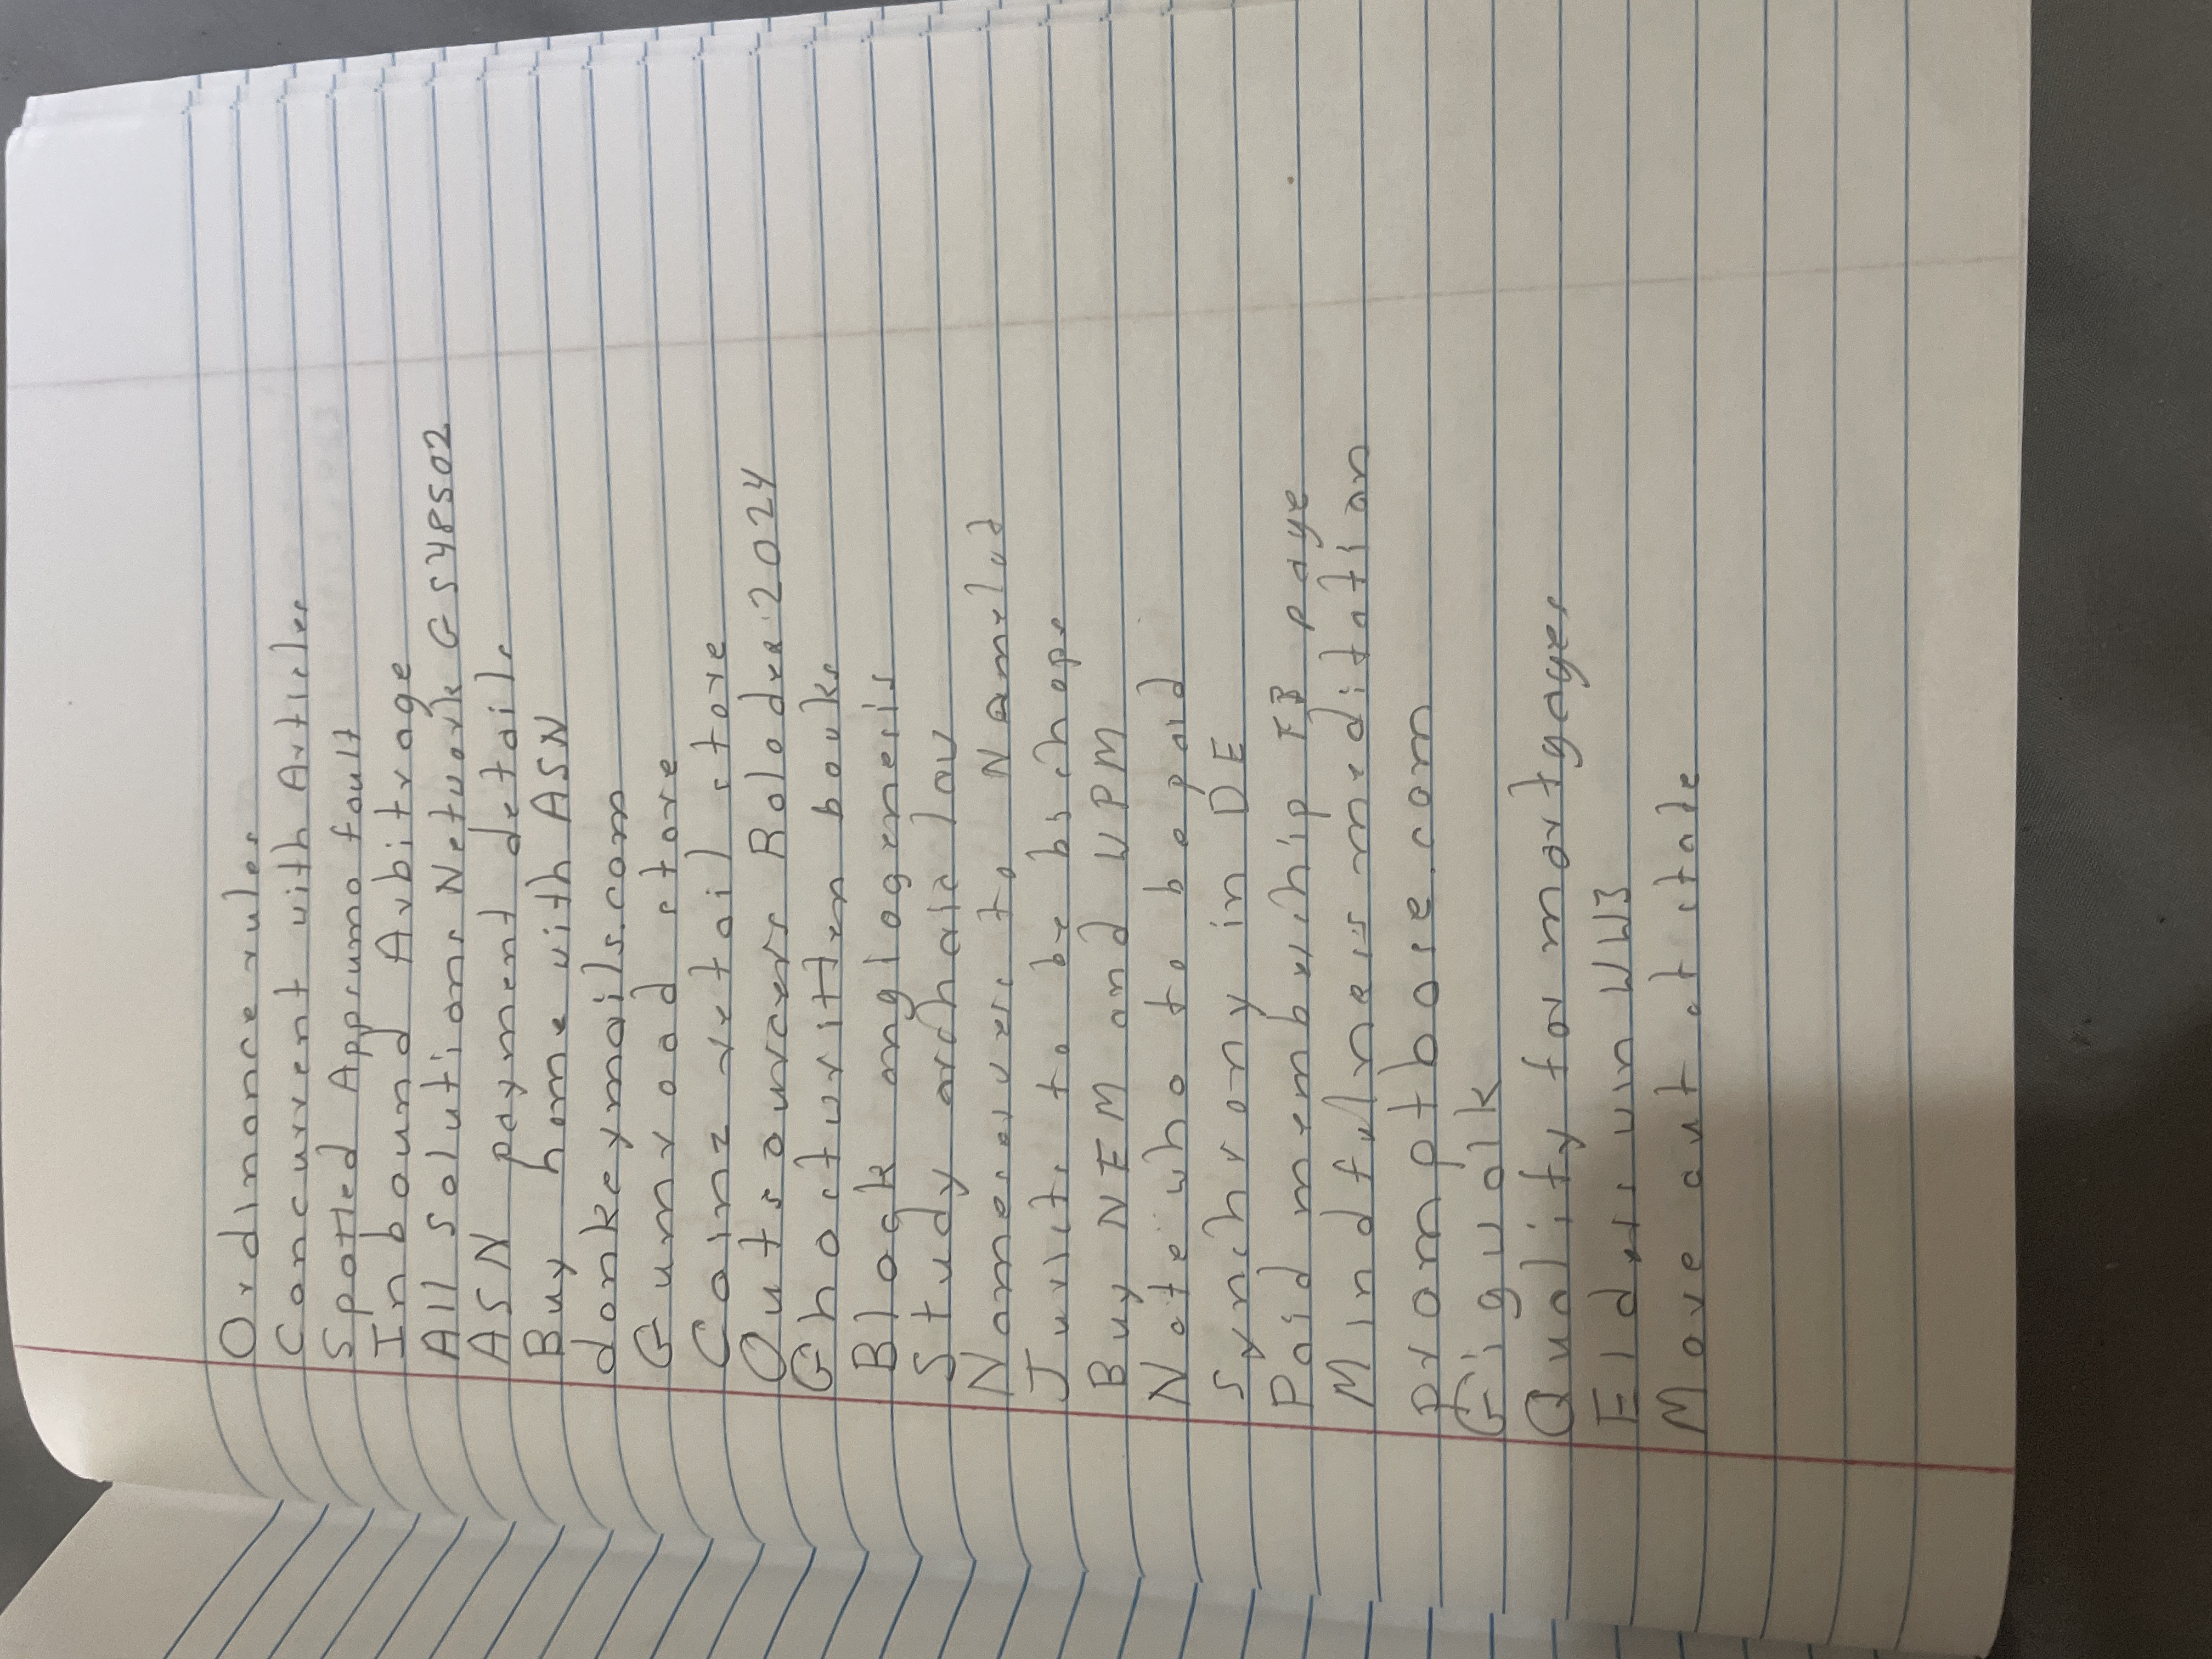 Ordinance rules
Concurrent with Articles
Spotted Appsumo fault
Inbound Arbitrage
All Solutions Network GS48502
ASN payment details
Buy home with ASN
donkeymails.com
Gumroad store
Coinz retail store
Outsourcers Balodra: 2024
Ghostwritten books
Block anglogenesis
Study archaic law
Nomesavers to
Jurists to be bishops
Buy NEM and WPM
Note who to be paid
Synchrony in DE
Paid membership FB page
Mindfulness meditation
promptbase.com
Gigwalk
Qualify for mortgages
Elders win WW3
Move out of state